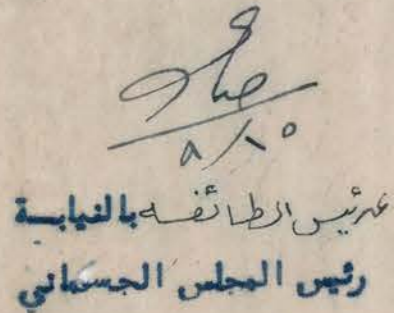 ٨/١٥
عن رئيس الطائفه بالنيابـة
رئيس المجلس الجسماني